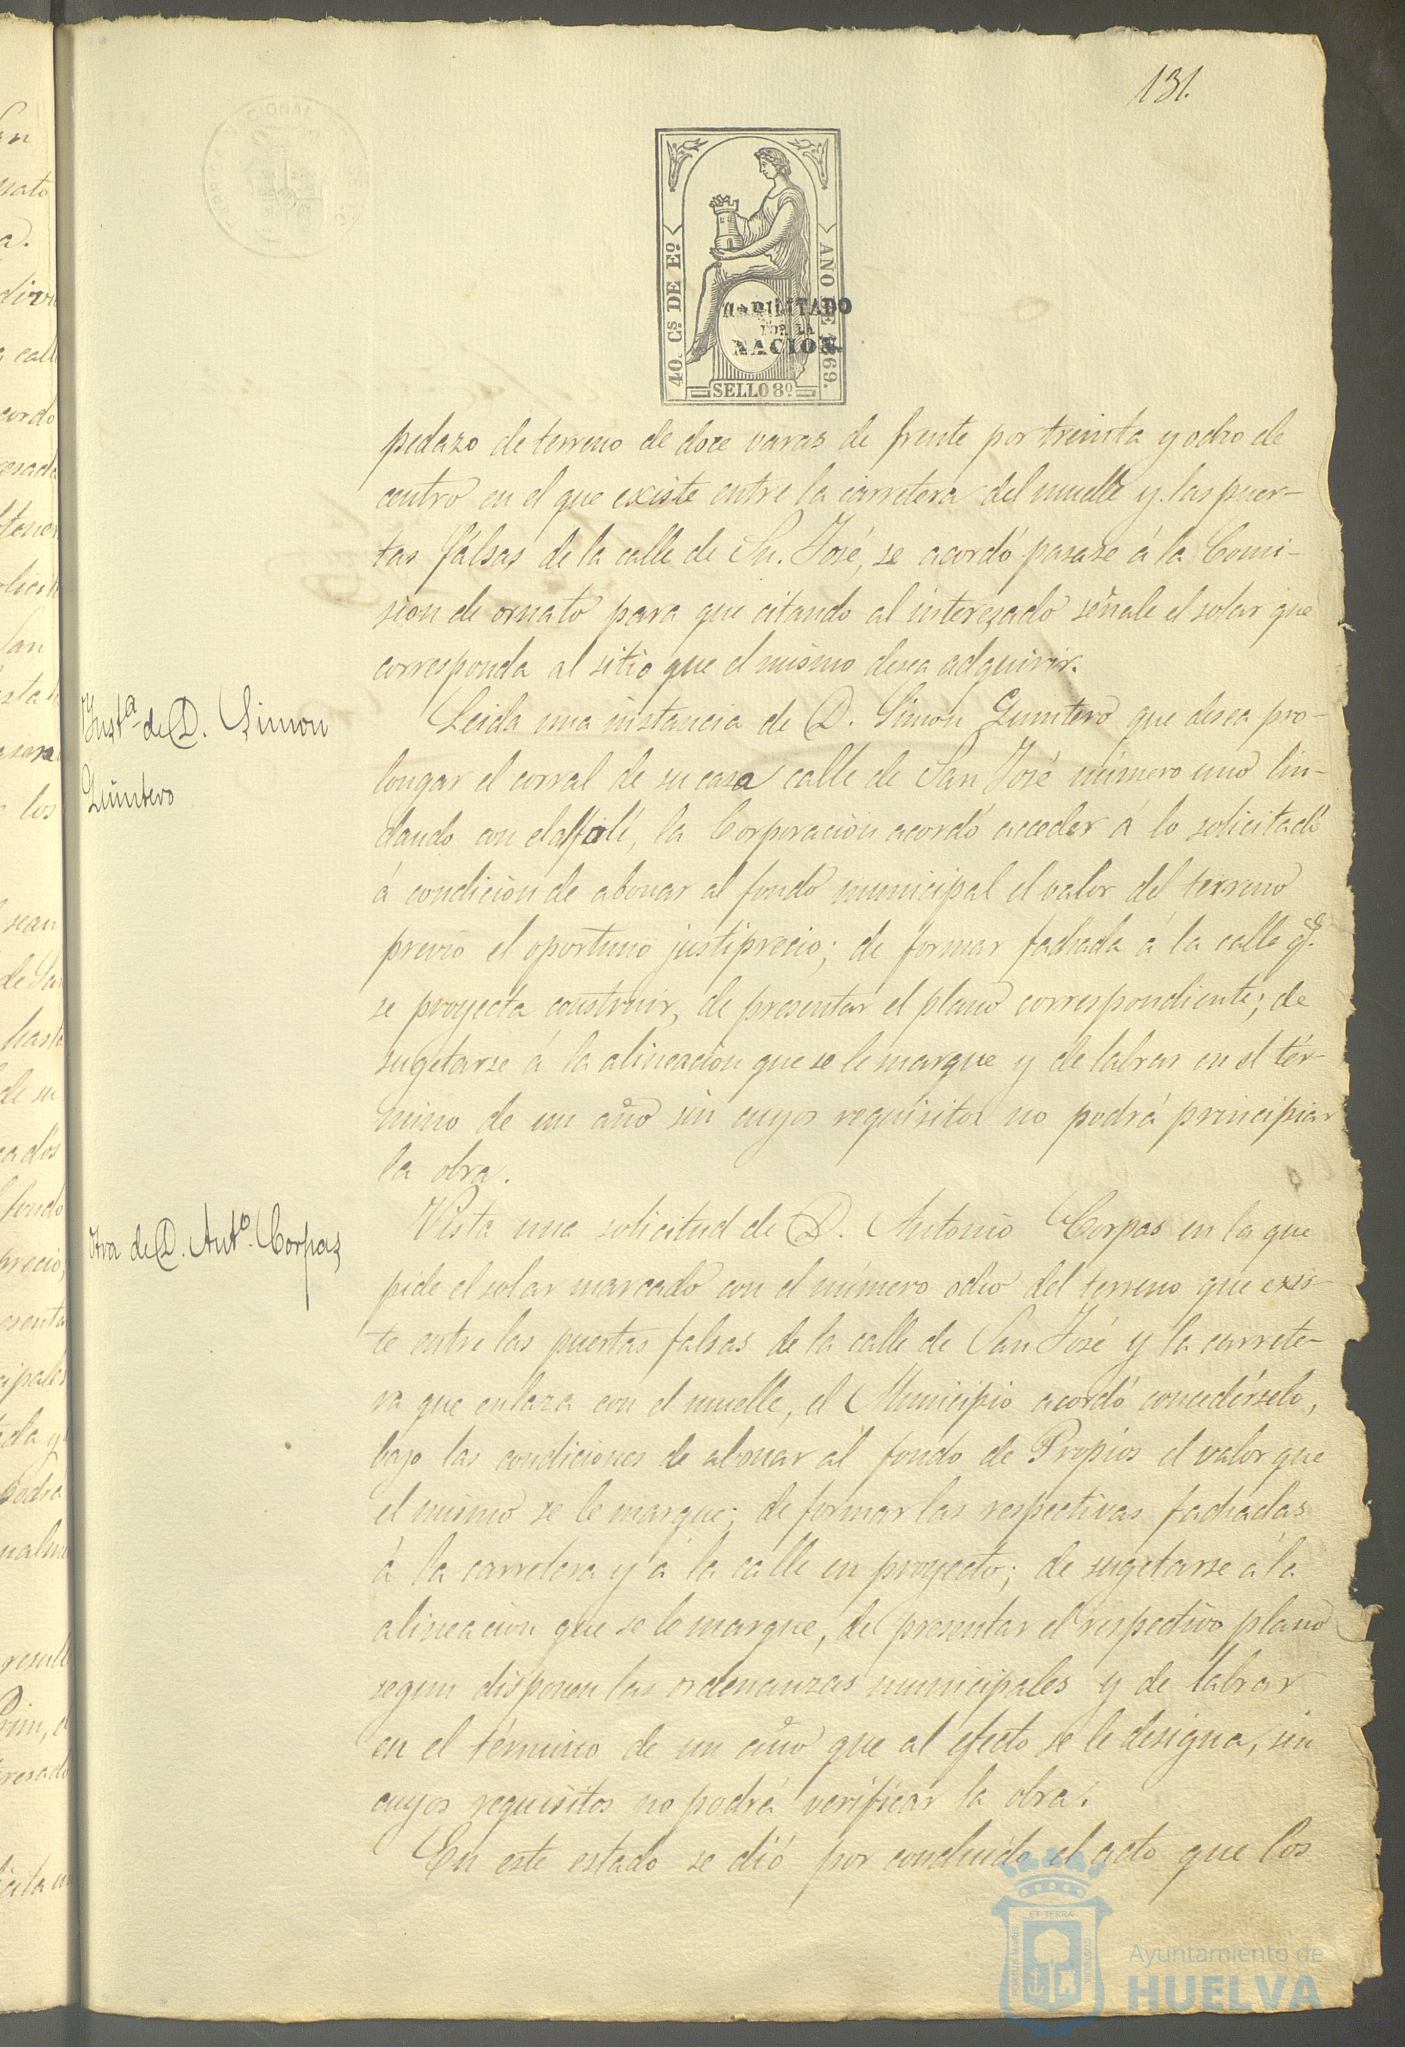 131.
40. Cs DE Eo
AÑO DE 1869.
HABILITADO
POR LA
NACION.
SELLO 8º
pedazo de terreno de doce varas de frente por treinta y ocho de
centro en el que existe entre la carretera del muelle y las puer-
tas fálsas de la calle de Sn. José, se acordó pasase á la Comi-
sion de ornato para que citando al interesado señale el solar que
corresponda al sitio que el mismo desea adquirir.
Insta de D. Simon
Quintero
Leida una instancia de D. Simon Quintero que desea pro-
longar el corral de su casa calle de San José número uno lin-
dando con el alfolí, la Corporacion acordó acceder á lo solicitado
á condicion de abonar al fondo municipal el valor del terreno
previo el oportuno justiprecio; de formar fachada á la calle qe.
se proyecta construir, de presentar el plano correspondiente; de
sugetarse á la alineacion que se le marque y de labrar en el tér-
mino de un año sin cuyos requisitos no podrá principiar
la obra.
Otra de D. Anto. Corpas
Vista una solicitud de D. Antonio Corpas en la que
pide el solar marcado con el número ocho del terreno que exis-
te entre las puertas falsas de la calle de San José y la carrete-
ra que enlaza con el muelle, el Municipio acordó concedérselo,
bajo las condiciones de abonar al fondo de Propios el valor que
el mismo se le marque; de formar las respectivas fachadas
á la carretera y á la calle en proyecto; de sugetarse á la
alineacion que se le marque, de presentar el respectivo plano
segun disponen las ordenanzas municipales y de labrar
en el término de un año que al efecto se le designa, sin
cuyos requisitos no podrá verificar la obra.
En este estado se dió por concluido el acto que los
Ayuntamiento de
HUELVA